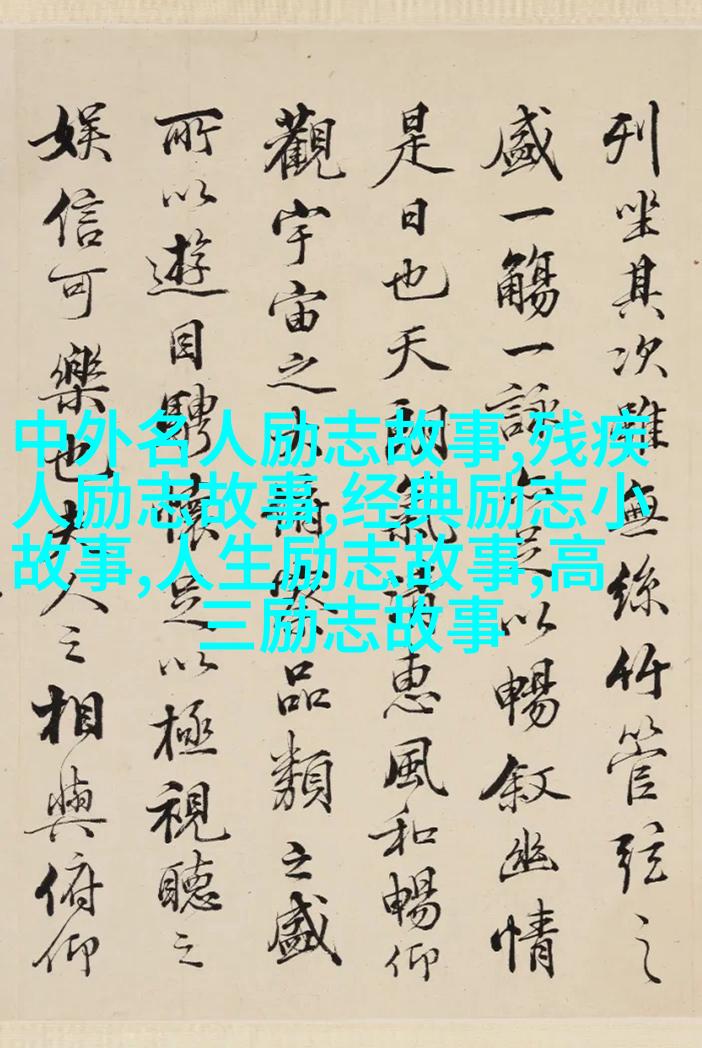 列坐其次雖無絲竹管弦之
盛一觴一詠亦足以暢叙幽情
是日也天朗氣清惠風和暢仰
觀宇宙之大俯察品類之盛
所以遊目騁懷足以極視聽之
娱信可樂也夫人之相與俯仰
中外名人励志故事,残疾
人励志故事,经典励志小
故事,人生励志故事,高
三励志故事